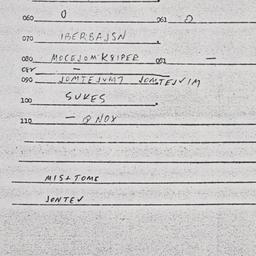 060 0 061 0
070 IBERBAJSN
080 MOCEJOM K8IPER 081 -
085 -
090 JOMTEJVM7 JOMTEJVIM
100 SUKES
110 - QNOX
MIS+TOME
JONTEJ